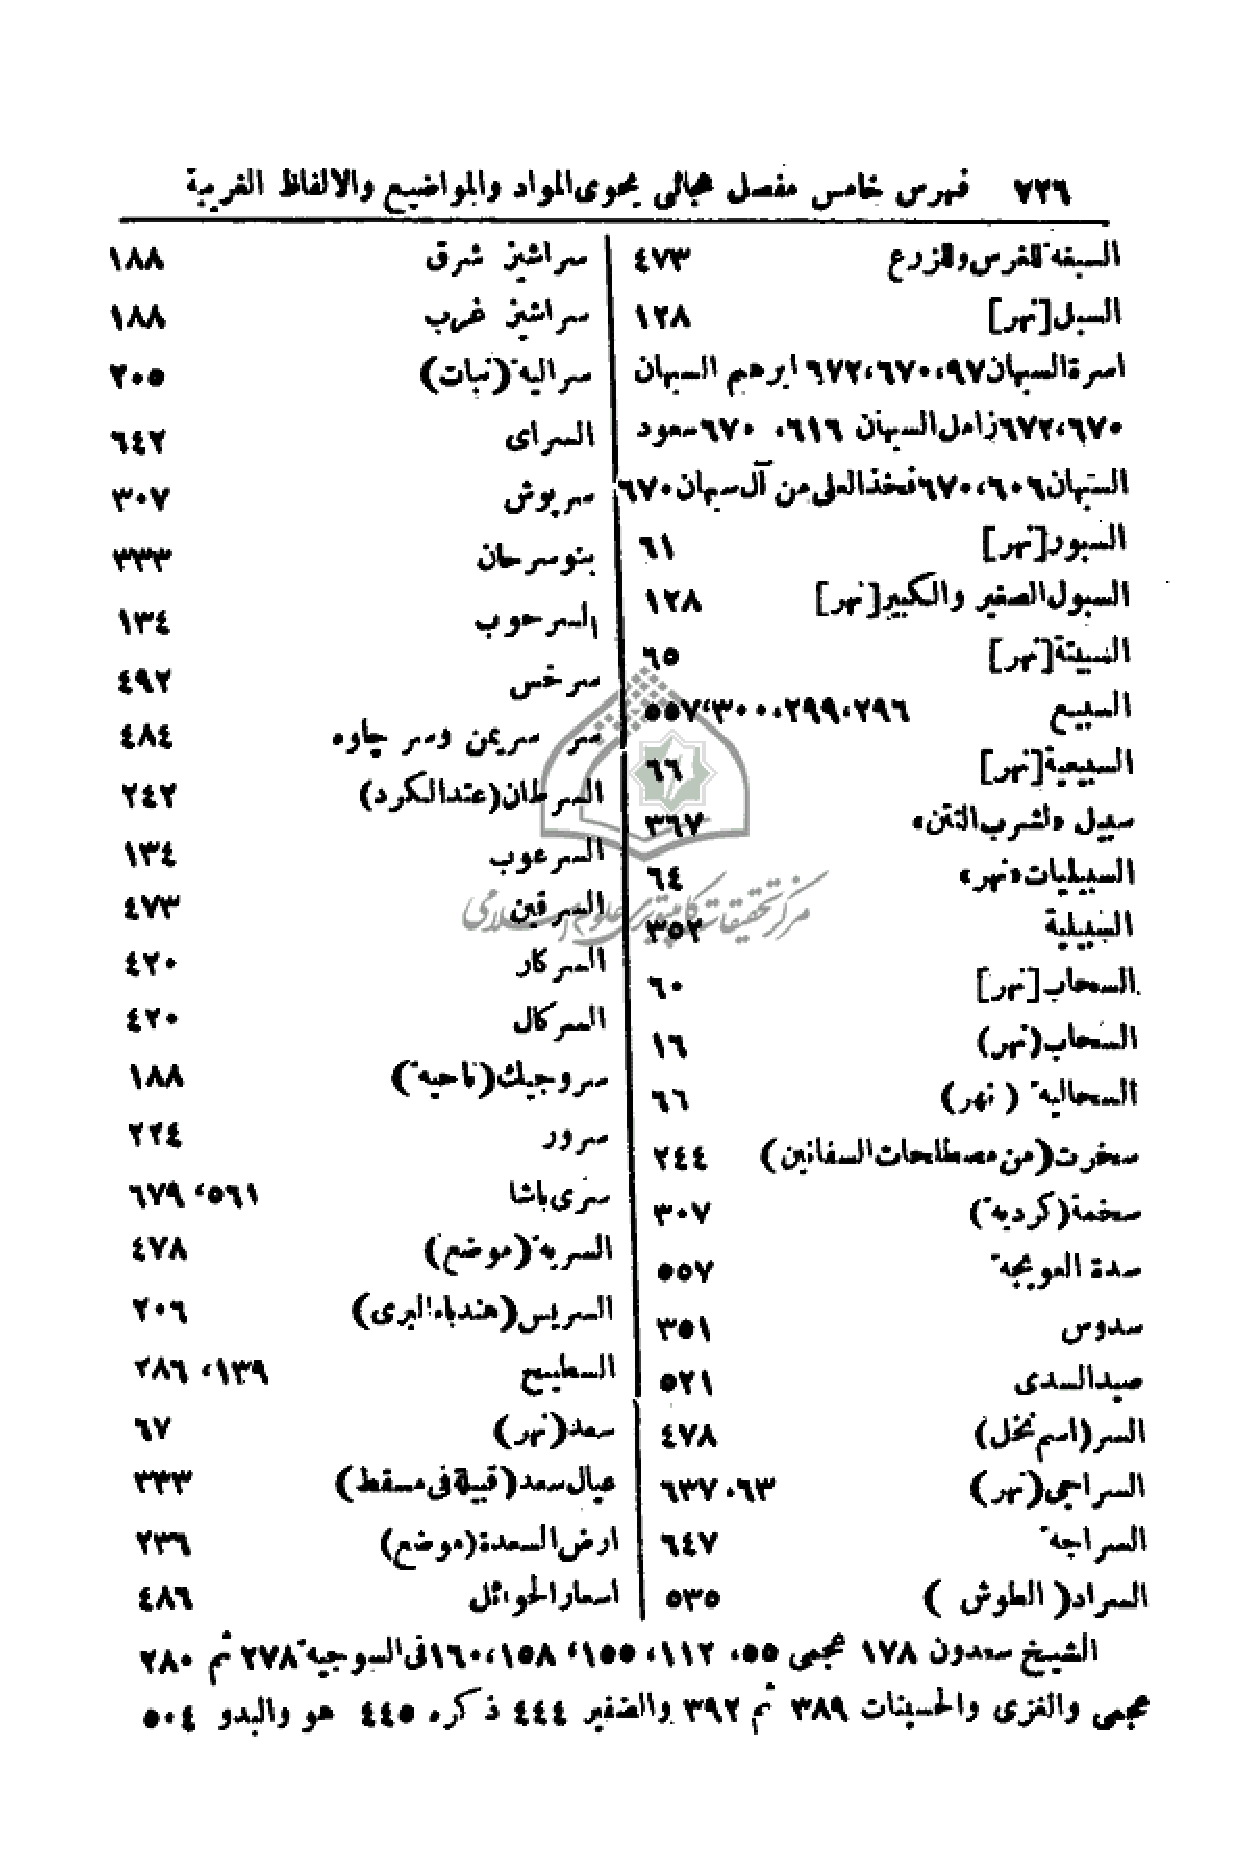 ٧٢٦ فهرس خامس مفصل هجائي يحوى المواد والمواضيع والالفاظ الغريبة
السبغة للغرس والزرع ٤٧٣
السبل [نهر] ١٢٨
اسرة السبهان ٩٧، ٦٧٠، ٦٧٢ ابرهيم السبهان
٦٧٠، ٦٧٢ زامل السبهان ٦١٦، ٦٧٠ سعود
السبهان ٦٠٦، ٦٧٠ فخذ العلي من آل سبهان ٦٧٠
السبور [نهر] ٦١
السبول الصغير والكبير [نهر] ١٢٨
السبيتة [نهر] ٦٥
السبيع ٢٩٦، ٢٩٩، ٣٠٠، ٥٥٧
السبيعية [نهر] ٦٦
سبيل «لشرب التتن» ٣٦٧
السبيليات «نهر» ٦٤
السبيلية ٣٥٢
السحاب [نهر] ٦٠
السحاب (نهر) ١٦
السحالية (نهر) ٦٦
سخرت (من مصطلحات السفانين) ٢٤٤
سخمة (كردية) ٣٠٧
سدة العويجة ٥٥٧
سدوس ٣٥١
صيد السدى ٥٢١
السر (اسم نخل) ٤٧٨
السراجى (نهر) ٦٣، ٦٣٧
السراجة ٦٤٧
السراد (الطوش) ٥٣٥
سراشيز شرق ١٨٨
سراشيز غرب ١٨٨
سرالية (نبات) ٢٠٥
السراى ٦٤٢
سربوش ٣٠٧
بنو سرحان ٣٣٣
السرحوب ١٣٤
سرخس ٤٩٢
سر سريمن وسر چاوه ٤٨٤
السرطان (عند الكرد) ٢٤٢
السرعوب ١٣٤
السرقين ٤٧٣
السركار ٤٢٠
السركال ٤٢٠
سروجيك (ناحية) ١٨٨
سرور ٢٢٤
سرى باشا ٥٦١، ٦٧٩
السرية (موضع) ٤٧٨
السريس (هندباء البرى) ٢٠٦
السطيح ١٣٩، ٢٨٦
سعد (نهر) ٦٧
عيال سعد (قبيلة فى مسقط) ٣٣٣
ارض السعدة (موضع) ٢٣٦
اسعار الحوائل ٤٨٦
الشيخ سعدون ١٧٨ عجمى ٥٥، ١١٢، ١٥٥، ١٥٨، ١٦٠ فى السوجية ٢٧٨ ثم ٢٨٠
عجمى والغزى والحسينات ٣٨٩ ثم ٣٩٢ والضفير ٤٤٤ ذكره ٤٤٥ هو والبدو ٥٠٤
مركز تحقيقات كامپيوترى علوم اسلامى